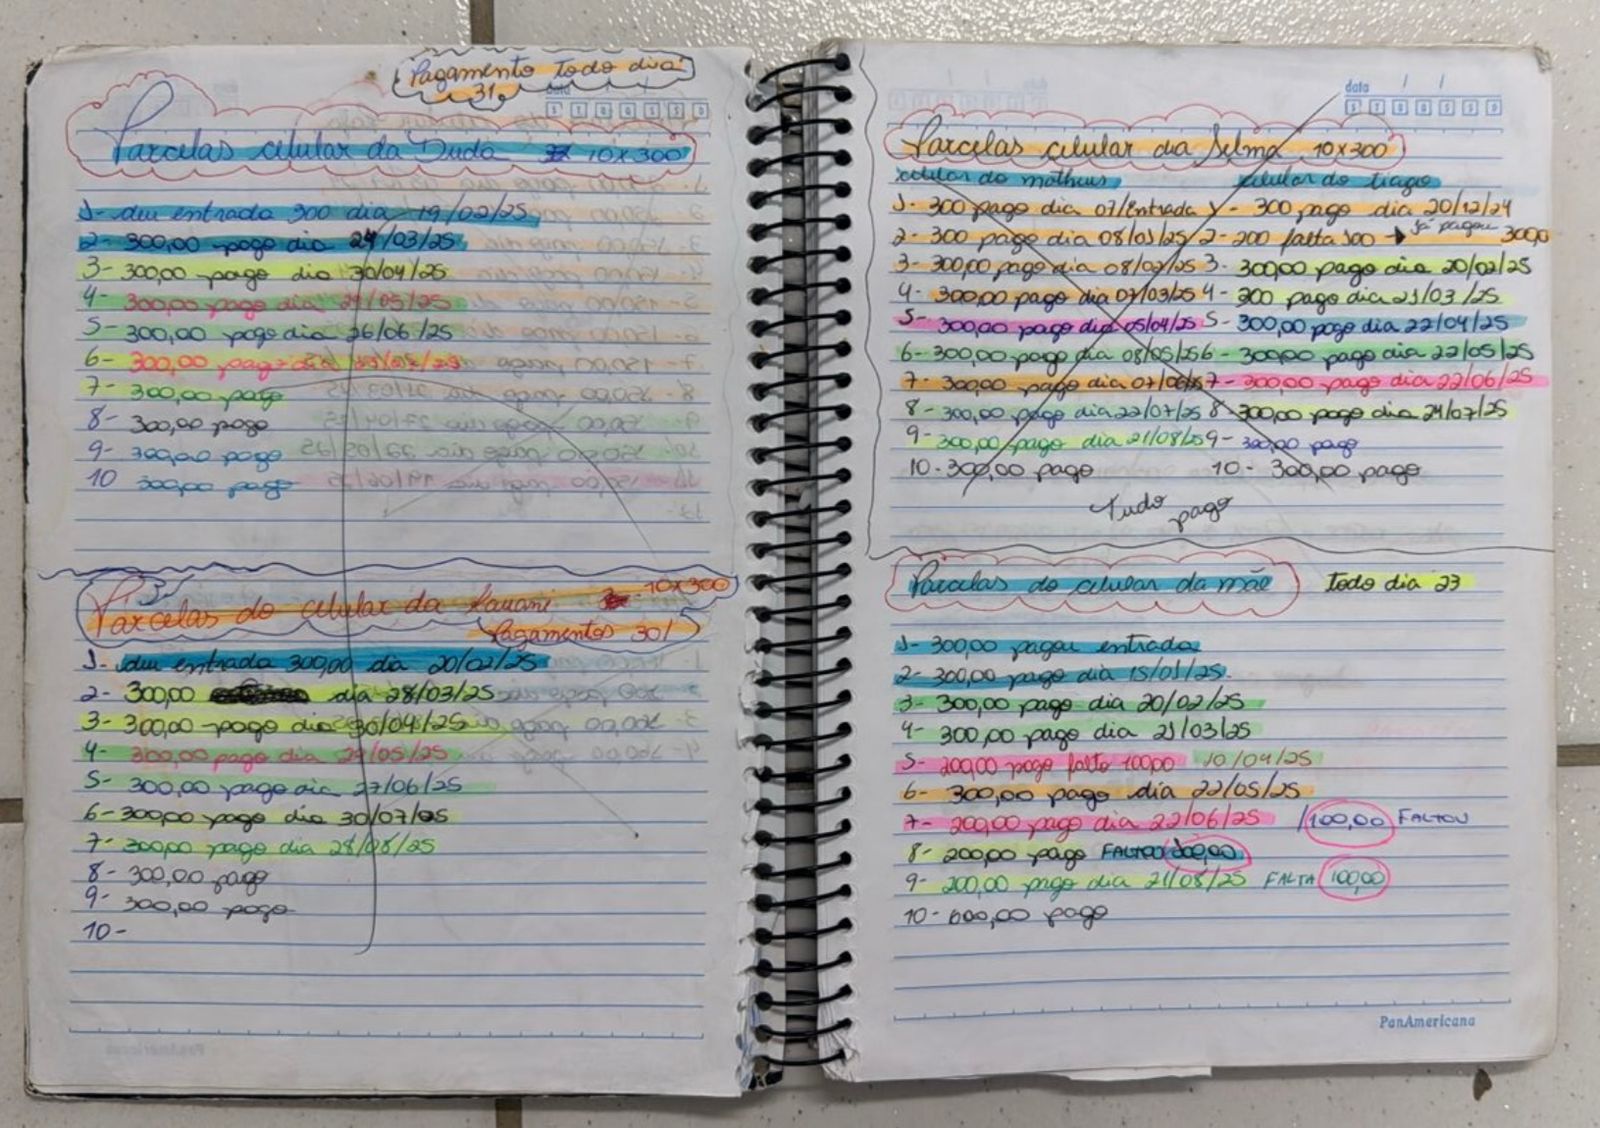 Pagamento todo dia
31
data / /
S T Q Q S S D
Parcelas celular da Duda 10x300
1- deu entrada 300 dia 19/02/25
2- 300,00 pago dia 24/03/25
3- 300,00 pago dia 30/04/25
4- 300,00 pago dia 29/05/25
5- 300,00 pago dia 26/06/25
6- 300,00 pago dia
7- 300,00 pago
8- 300,00 pago
9- 300,00 pago
10 300,00 pago
Parcelas do celular da Kauani 10x300
Pagamentos 30/
1- deu entrada 300,00 dia 20/02/25
2- 300,00 dia 28/03/25
3- 300,00 pago dia 30/04/25
4- 300,00 pago dia 29/05/25
5- 300,00 pago dia 27/06/25
6- 300,00 pago dia 30/07/25
7- 300,00 pago dia 28/08/25
8- 300,00 pago
9- 300,00 pago
10-
data / /
S T Q Q S S D
Parcelas celular da Selma 10x300
celular do matheus
1- 300 pago dia 07/entrada
2- 300 pago dia 08/01/25
3- 300,00 pago dia 08/02/25
4- 300,00 pago dia 07/03/25
5- 300,00 pago dia 05/04/25
6- 300,00 pago dia 08/05/25
7- 300,00 pago dia 07/06/25
8- 300,00 pago dia 22/07/25
9- 300,00 pago dia 21/08/25
10- 300,00 pago
celular do tiago
1- 300 pago dia 20/12/24
2- 200 falta 100 → já pagou 300,0
3- 300,00 pago dia 20/02/25
4- 300 pago dia 21/03/25
5- 300,00 pago dia 22/04/25
6- 300,00 pago dia 22/05/25
7- 300,00 pago dia 22/06/25
8- 300,00 pago dia 24/07/25
9- 300,00 pago
10- 300,00 pago
Tudo pago
Parcelas do celular da mãe todo dia 23
1- 300,00 pagou entrada
2- 300,00 pago dia 15/01/25.
3- 300,00 pago dia 20/02/25
4- 300,00 pago dia 21/03/25
5- 200,00 pago falto 100,00 10/04/25
6- 300,00 pago dia 22/05/25
7- 200,00 pago dia 22/06/25 /100,00 FALTOU
8- 200,00 pago FALTOU 100,00
9- 200,00 pago dia 21/08/25 FALTA 100,00
10- 600,00 pago
PanAmericana